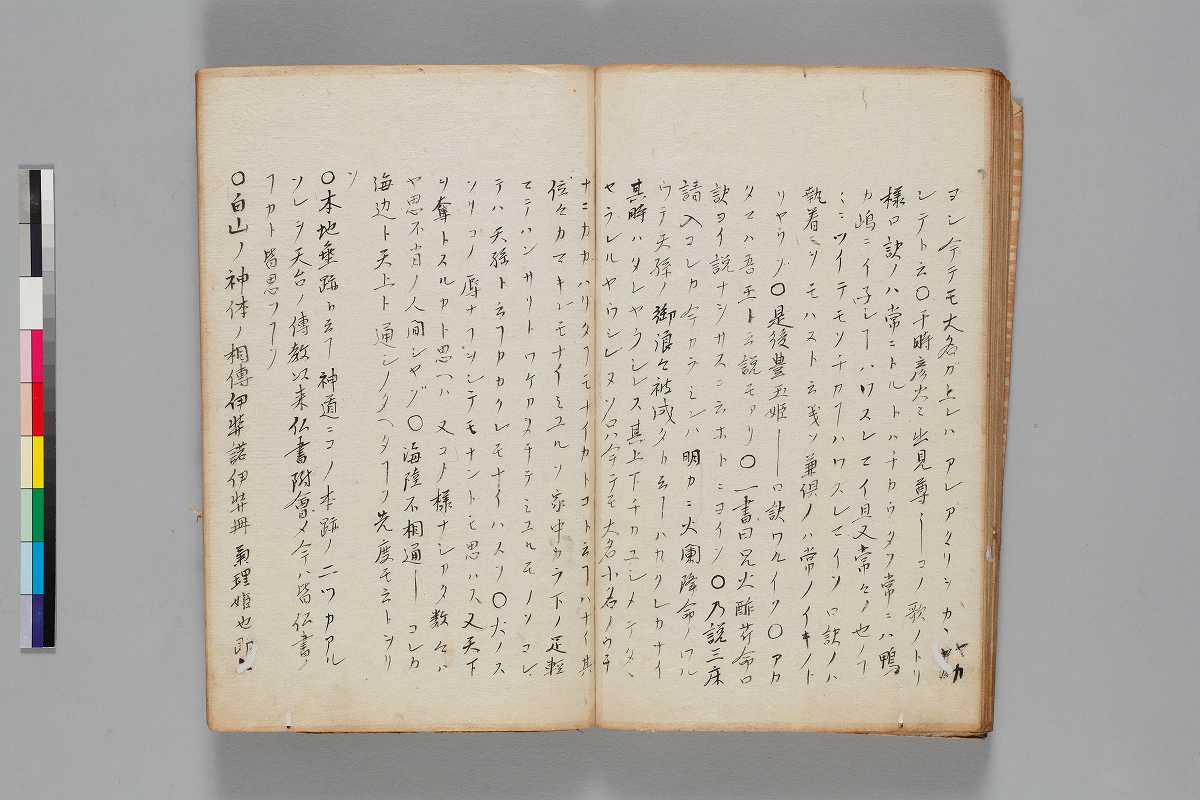 ヨシ今テモ大名カ上レハアレアタリシカヽヤカ
シテト云〇于時彦火々出見尊ーーコノ歌ノトリ
様口訣ノハ常ニトルトハチカウタソ常ニハ鴨
カ嶋ニイ子シーハワスレマイ且又常々ノ世ノフ
ミニツイテモソチカフーハワスレマイソ口訣ノハ
執着ニソモハスト云義ソ兼倶ノハ常ノイキノト
リヤウゾ〇是後豊玉姫ーー口訣ワルイソ〇アカ
タマハ吾玉ト云説モアリ〇一書曰兄火酢芹命口
訣ヨイ説ナシカスニ云ホトニヨイソ〇乃設三床
請入コレカ今カラミレハ明カニ火闌降命ノワル
ウテ天孫ノ御浪々被成タト云フーハカクレカナイ
其時ハタレヤラシレス其上下チカユシメテタヽ
ヤラレルヤウシレヌソロハ今テモ大名小名ノウチ
ナニカカハリタフモナイカトコト云フーハナイ其
位々カマキレモナイミユルソ家中カラ下ノ足軽
マテハンサリトワケカタチテミユルモノソコレ
テハ天孫ト云フカカクレモナイハスソ〇犬ノス
ソリコノ辱ナフソンテモナントモ思ハス又天下
ヲ奪トスルカト思ヘハ又コノ様ナシカタ数々ハ
ヤ思不肖ノ人間シヤゾ〇海陸不相通ーーコレカ
海辺ト天上ト通シノタヘタフーソ先度モ云トヲリ
ソ
〇本地垂跡ト云フー神道ニコノ本跡ノ二ツカアル
ソレヲ天台ノ傳教以来仏書附會メ今ハ皆仏書ノ
フカト皆思フフーソ
〇白山ノ神体ノ相傳伊弉諾伊弉冊菊理姫也即